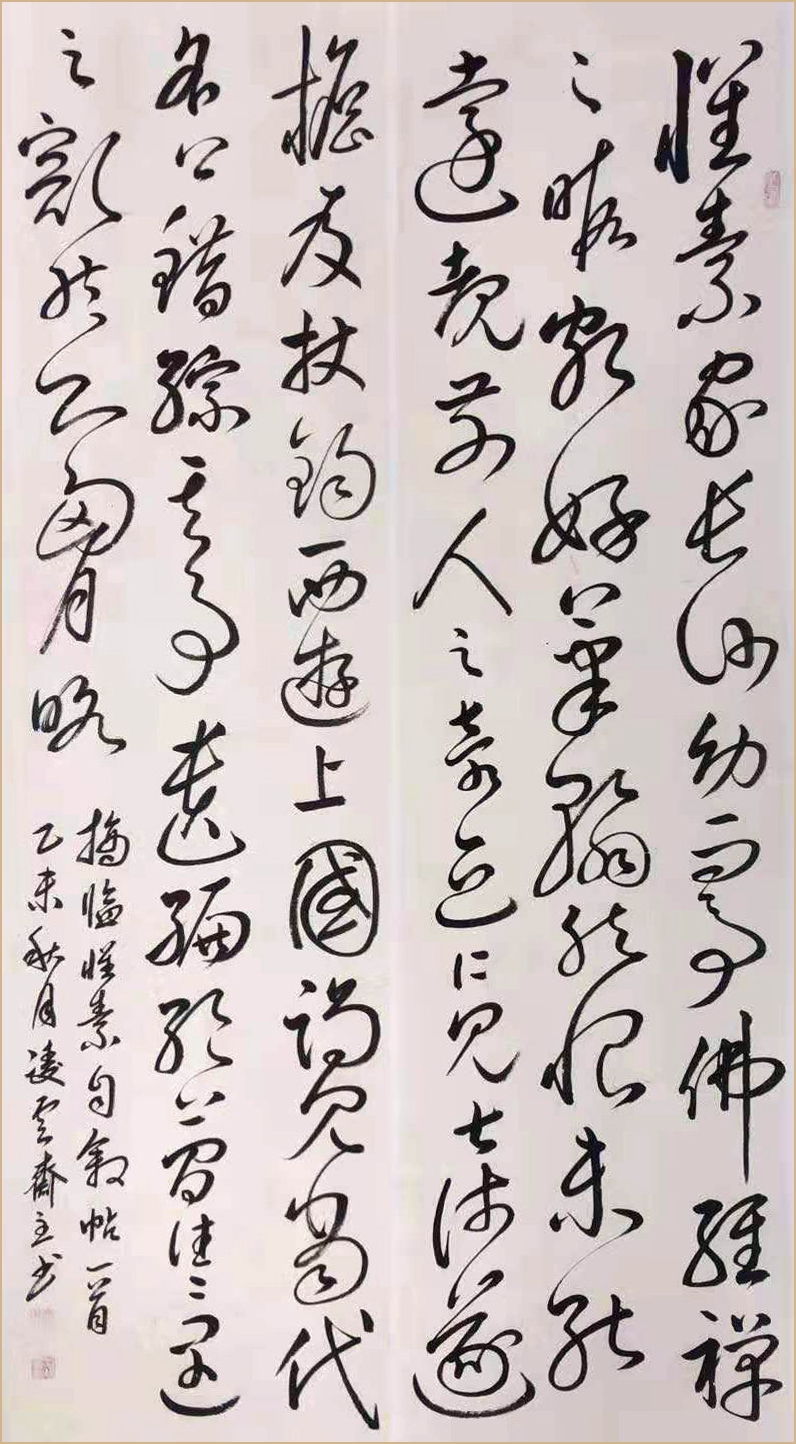 懷素家長沙幼而事佛經禪
之暇頗好筆翰然恨未能
遠覩前人之奇迹所見甚淺遂
擔笈杖錫西遊上國謁見當代
名公錯綜其事遺編絕簡往〻遇
之豁然心胸略
摘臨懷素自敘帖一首
乙未秋月凌雲齋主書